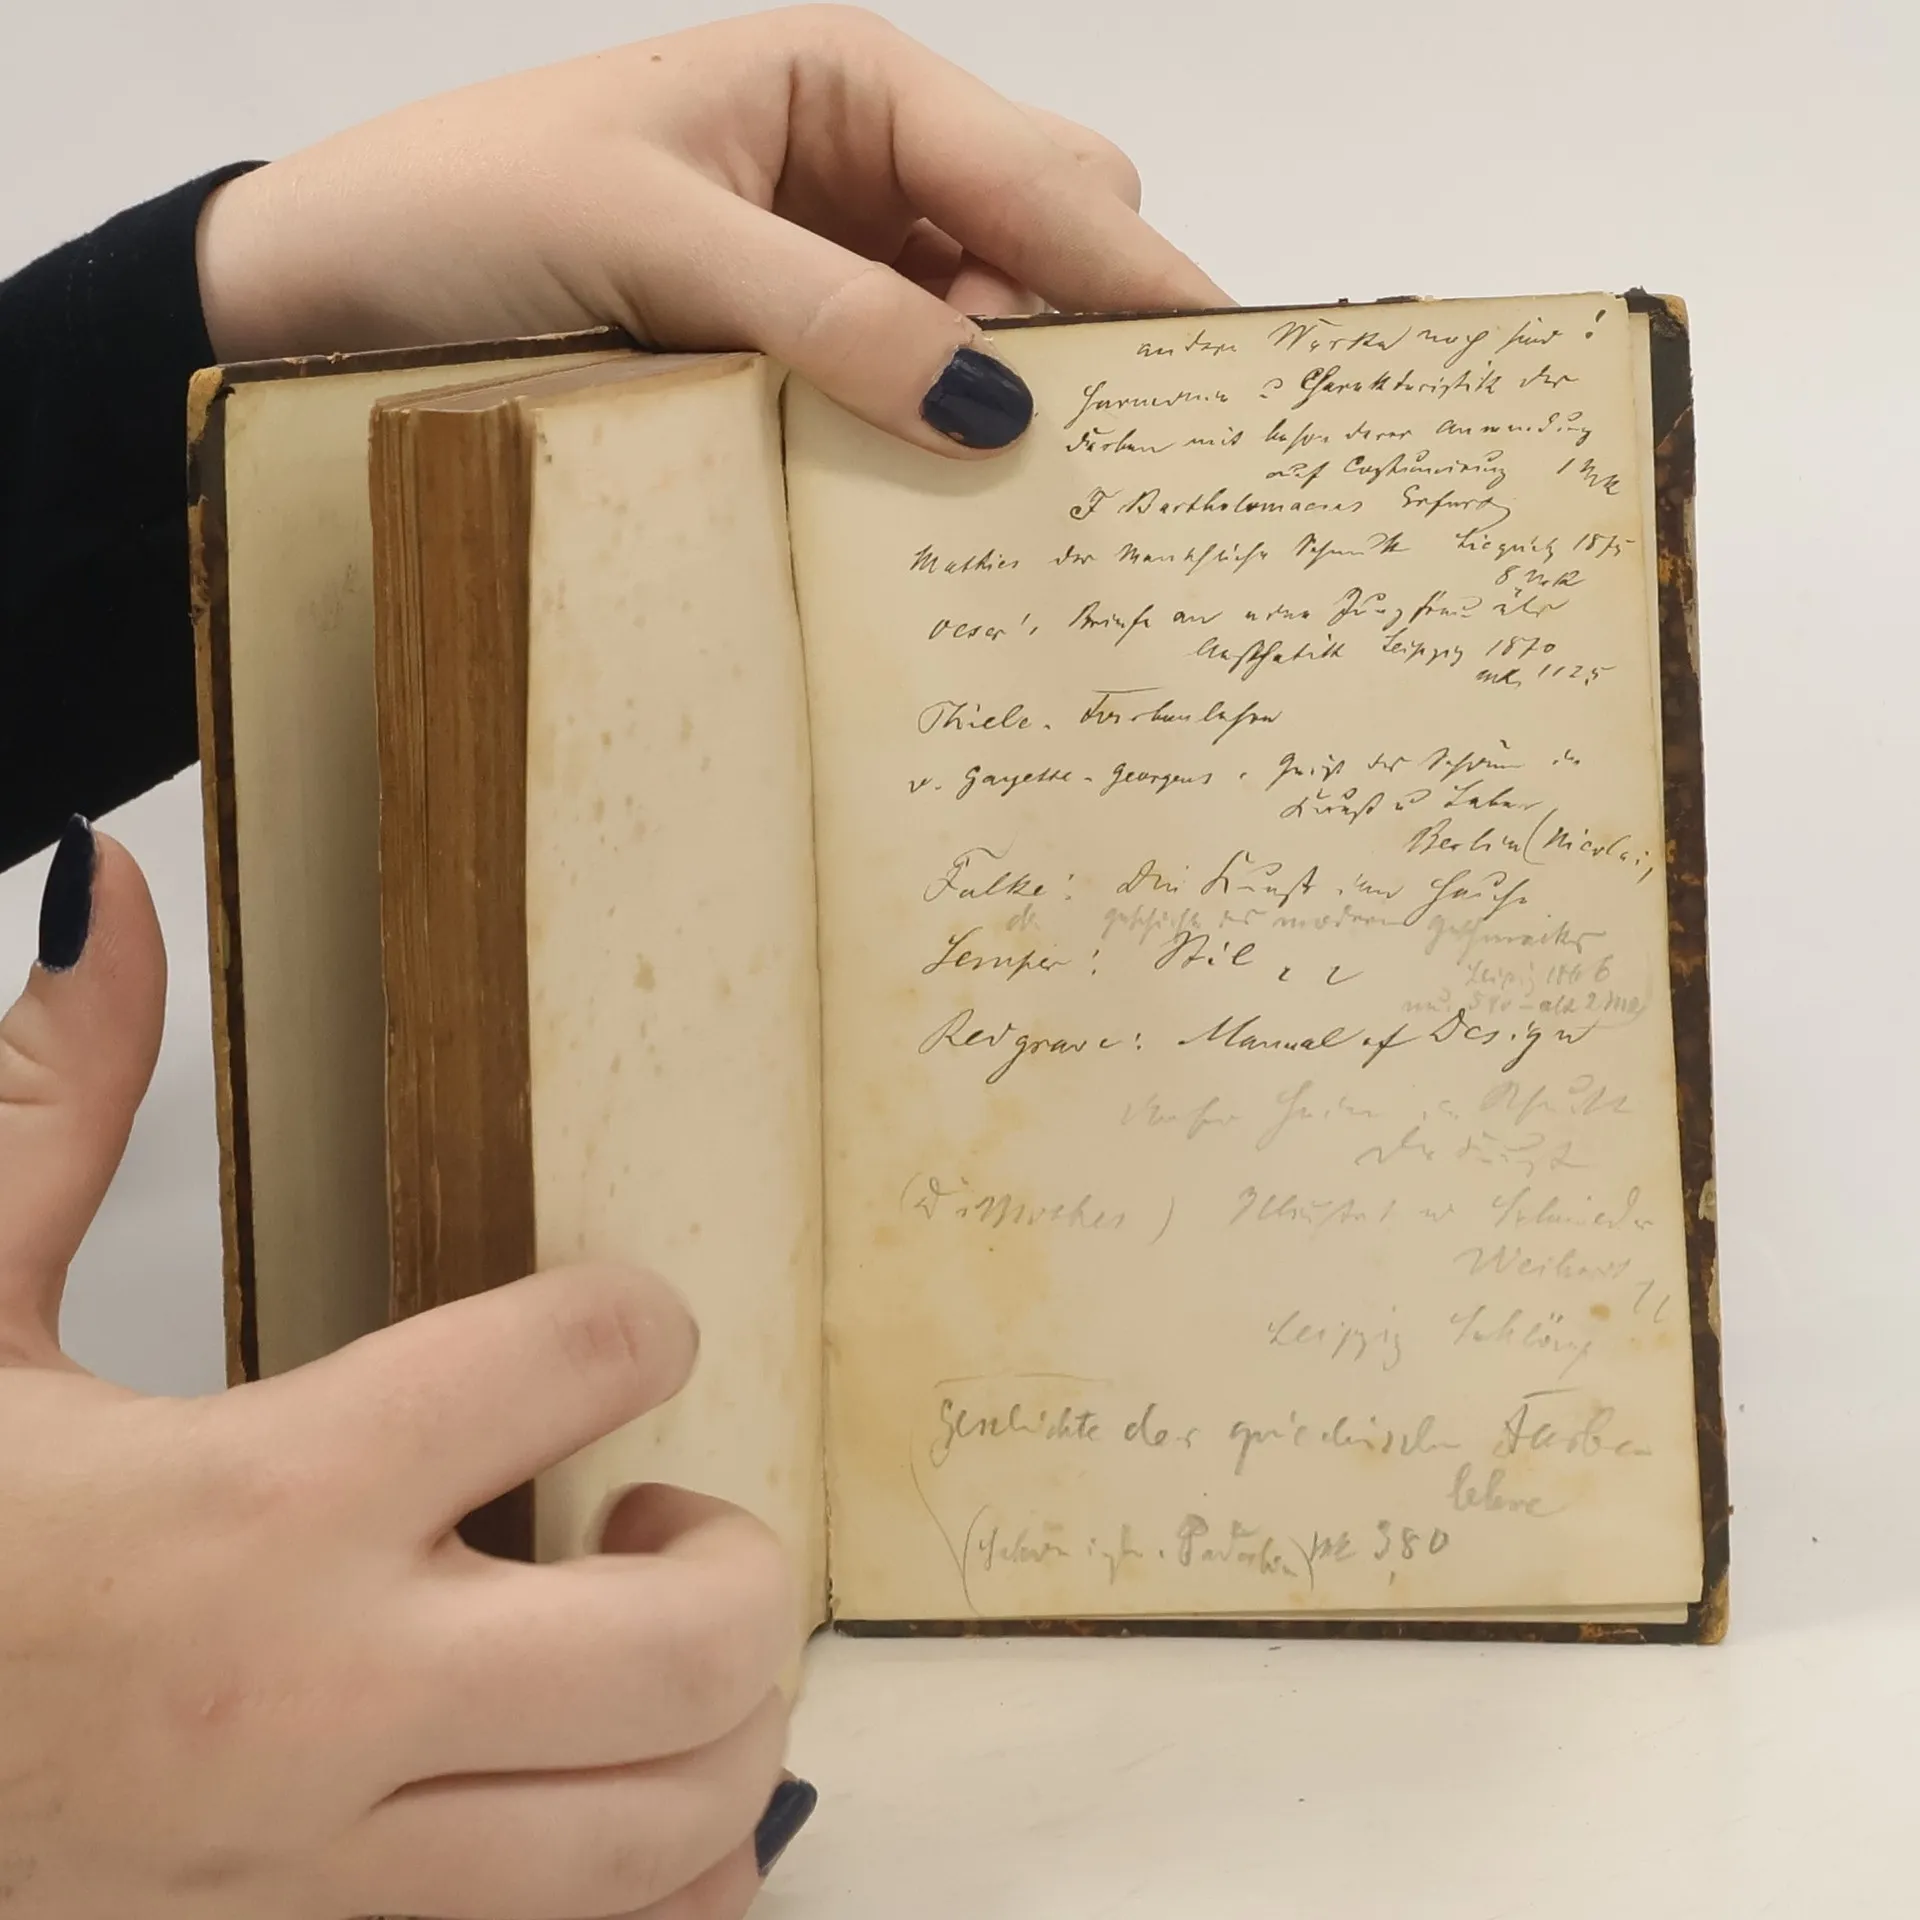 andere Werke noch sind!
Harmonie u Charakteristik der
Farben mit besonderer Anwendung
auf Costümirung 1 Mrk
F Bartholomaeus Erfurt
Mathias der Menschliche Schmuck Liegnitz 1875
8 Mrk
Oeser's Briefe an eine Jungfrau über
Aesthetik Leipzig 1870
mk 1125
Thiele. Farbenlehre
v. Gayette-Georgens. Geist des Schönen in
Kunst u Leben
Berlin (Nicolai)
Falke: Die Kunst im Hause
Geschichte des modernen Geschmackes
Semper: Stil
Leipzig 1866
Redgrave: Manual of Design
Unser Heim im Schmuck
der Kunst
Leipzig
Geschichte der griechischen Farben
lehre
Paderborn) Mk 3,80